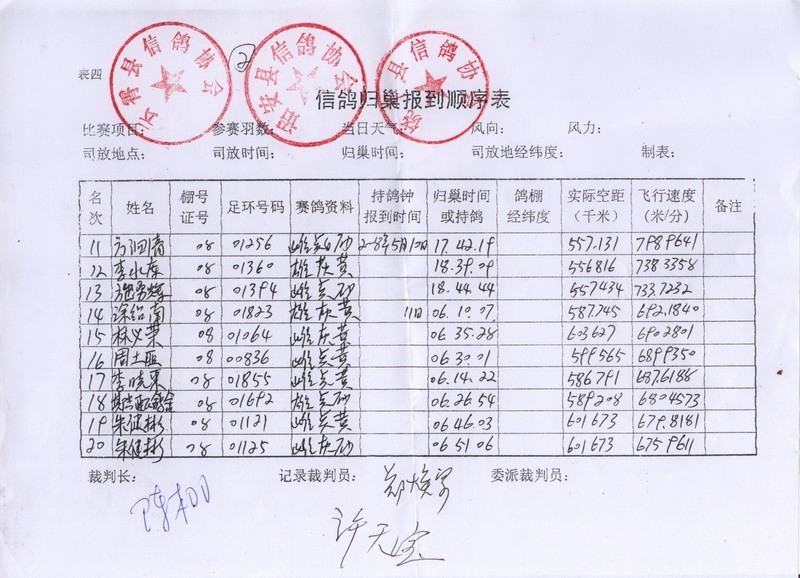 表四
②
云霄县信鸽协会
诏安县信鸽协会
饶县信鸽协会
信鸽归巢报到顺序表
比赛项目： 参赛羽数： 当日天气： 风向： 风力：
司放地点： 司放时间： 归巢时间： 司放地经纬度： 制表：
名次 姓名 棚号证号 足环号码 赛鸽资料 持鸽钟报到时间 归巢时间或持鸽 鸽棚经纬度 实际空距（千米） 飞行速度（米/分） 备注
11 08 01256 雌 砂 17.42.19 557.131 7989641
12 李水 08 01360 雄灰黄 18.39.09 556816 7383358
13 08 01394 雌 砂 18.44.44 557434 733.7232
14 08 01823 雄灰黄 11日 06.10.07 587.745 692.1840
15 林义荣 08 01064 雌灰黄 06.35.28 603627 6902801
16 周土 08 00836 雌 黄 06.30.01 599565 6899350
17 李晓 08 01855 雌 黄 06.14.22 586791 687.6188
18 08 01692 雄 砂 06.26.54 589208 6804573
19 朱健彬 08 01121 雌 黄 06.46.03 601673 679.8181
20 朱健彬 08 01125 雌灰砂 06 51 06 601673 6759611
裁判长： 记录裁判员： 郑焕 委派裁判员：
许天宝